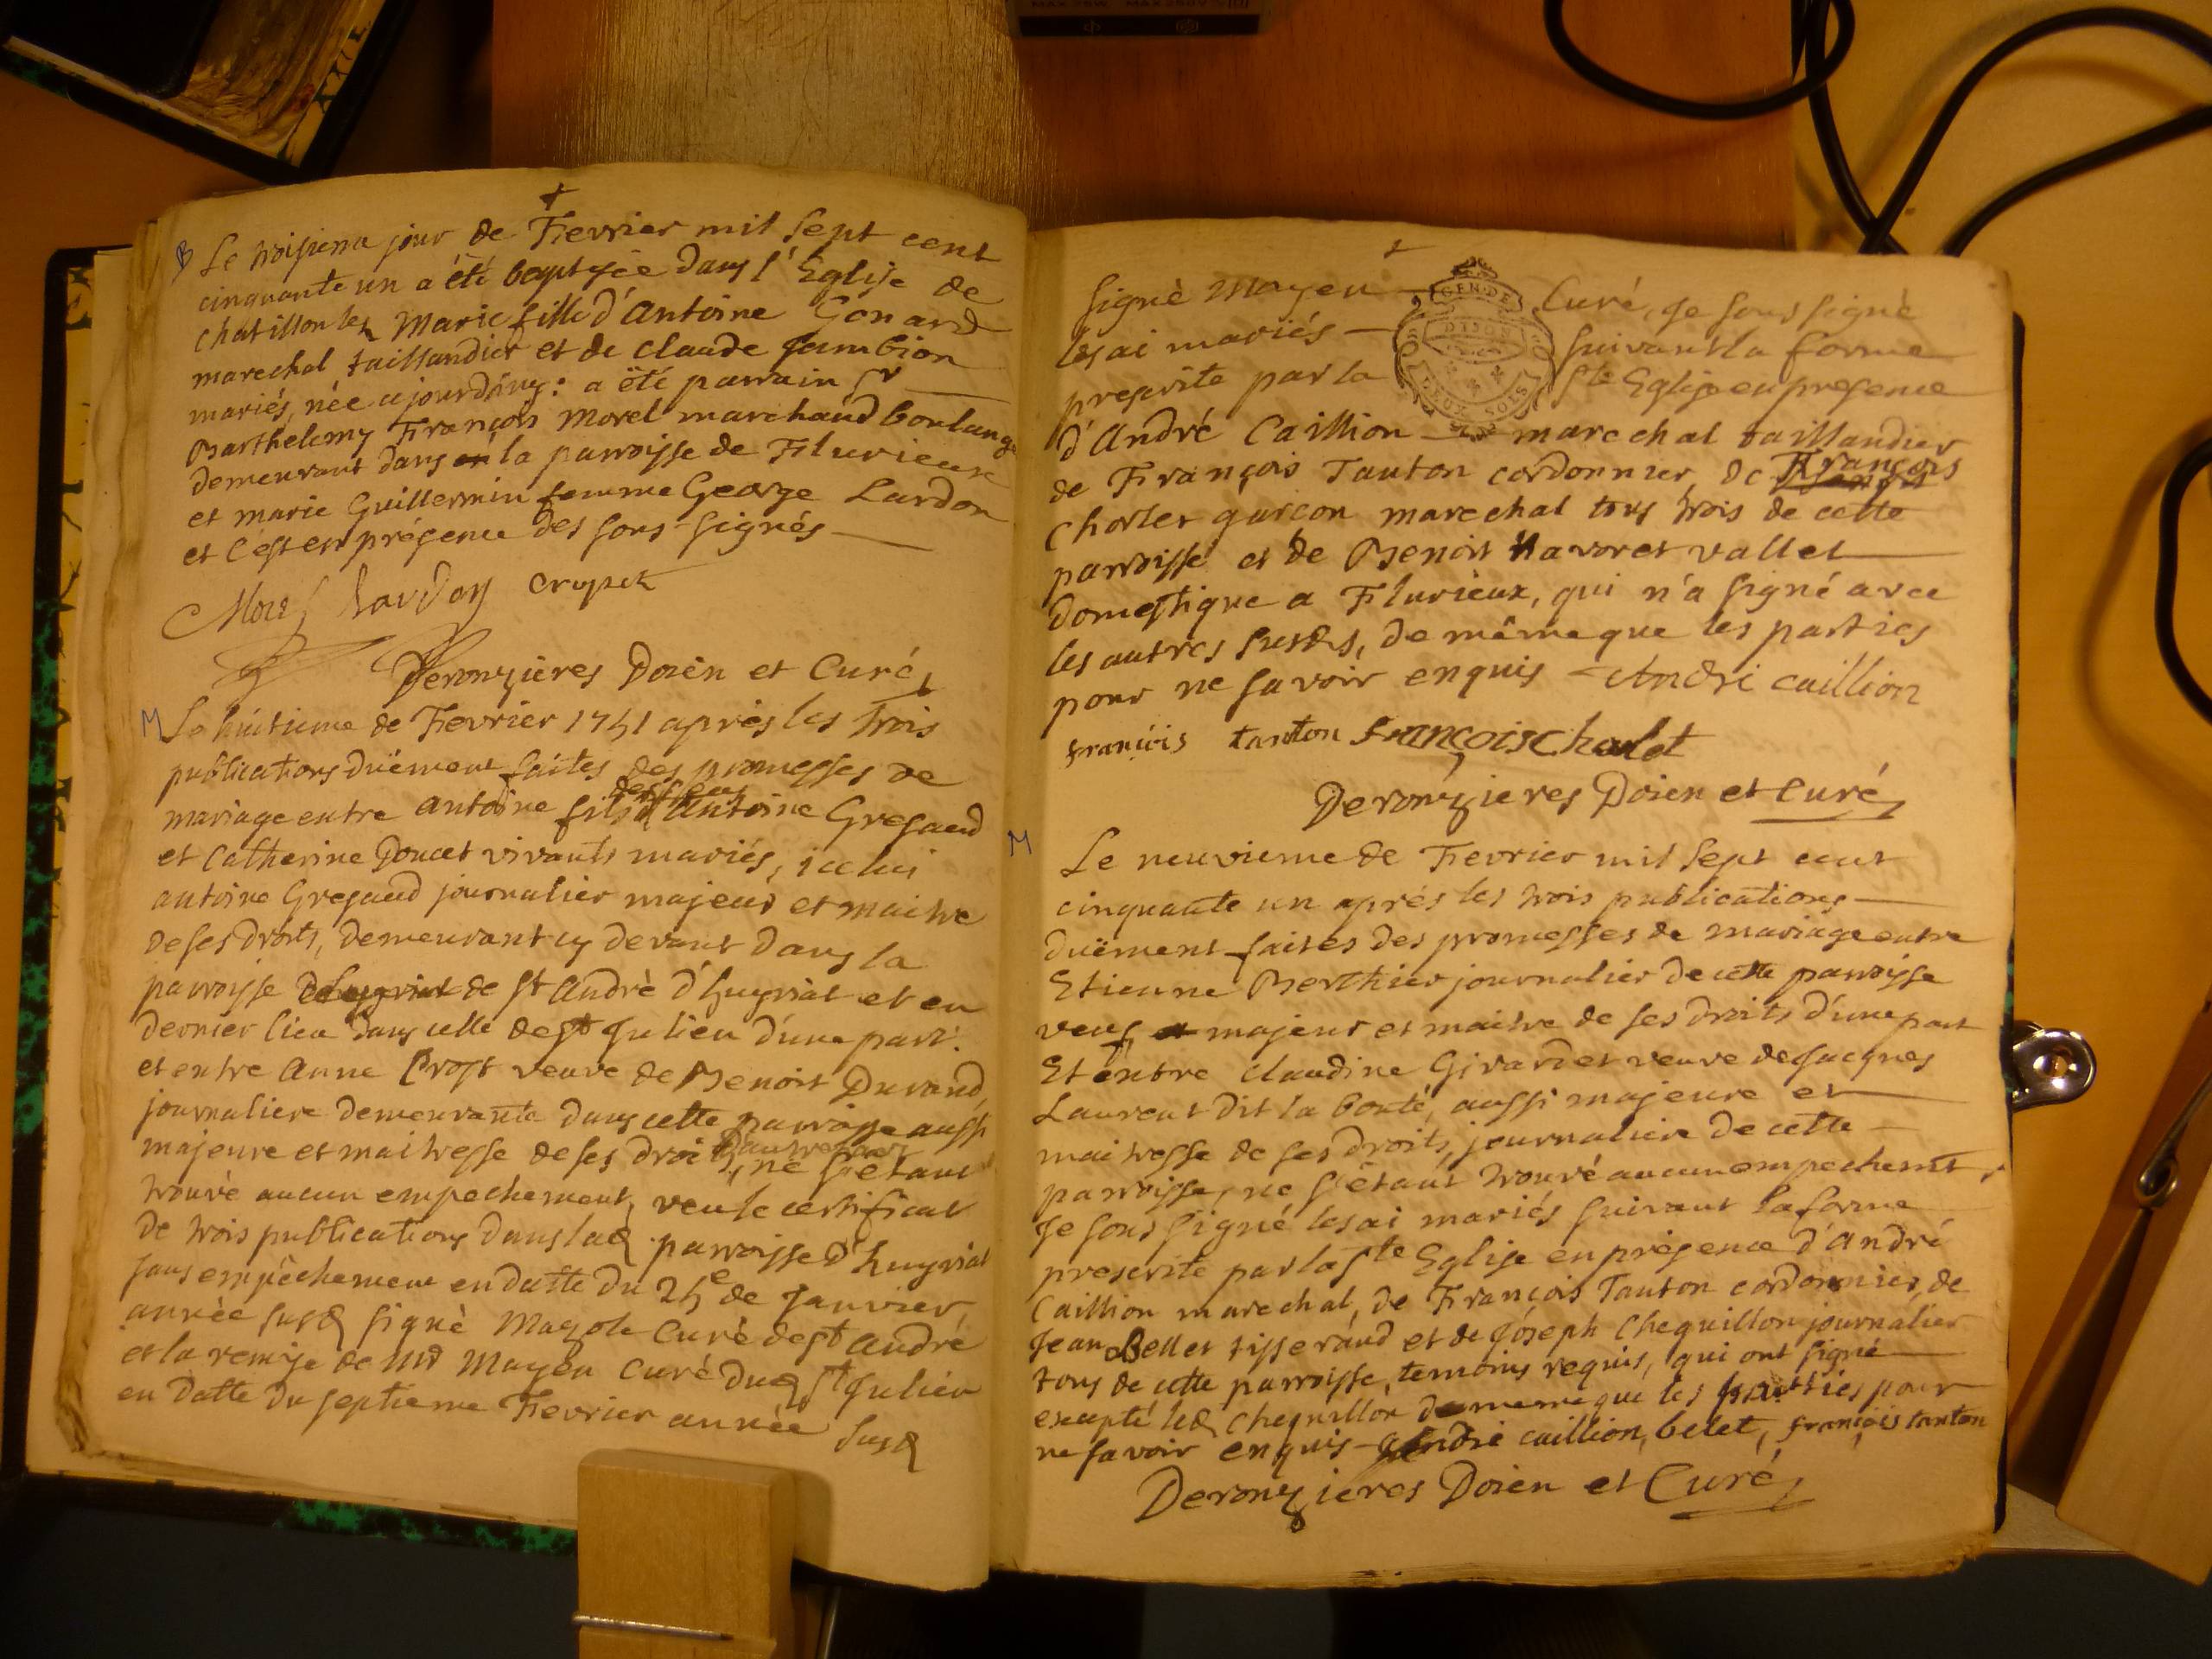 +
B Le troisieme jour de Fevrier mil Sept cent
cinquante un a été baptisée dans l'Eglise de
chatillon les Marie fille d'Antoine Gonard
marechal taillandier et de claude Jambion
mariés, née ajourd'huy: a été parrain Sr
Barthelemy François Morel marchand boulang
demeurant dans la parroisse de Flurieux
et marie Guillermin femme George Lardon
et c'est en présence des sous-signés
Morel Lardon
Deronzières Doïen et Curé
M Le huitieme de Fevrier 1751 après les trois
publications duëment faites des promesses de
mariage entre antoine fils d'Antoine Gregaud
et Catherine Doucet vivants mariés, icelui
antoine Gregaud journalier majeur et maitre
de ses droits, demeurant cy devant dans la
parroisse de St André d'huyriat et en
dernier lieu dans celle de St Julien d'une part.
et entre Anne Prost veuve de Benoit Durand,
journaliere demeurante dans cette parroisse aussi
majeure et maitresse de ses droits d'autre part, ne s'etant
trouvé aucun empechement, veu le certificat
de trois publications dans lad. parroisse d'huyriat
sans empêchement en datte du 25e de Janvier
année susd signé Mazole Curé de St André
et la remise de Mr Mayeu Curé dud St Julien
en datte du septieme Fevrier année susd
+
signé Mayeu Curé, Je sous signé
les ai mariés suivant la forme
prescrite par la Ste Eglise en presence
GEN. DE
DIJON
DEUX SOLS
d'André Caillion marechal taillandier
de François Tanton cordonnier, de François
Charlet garçon marechal tous trois de cette
parroisse et de Benoit Navoret vallet
domestique a Flurieux, qui n'a signé avec
les autres susds, de même que les parties
pour ne savoir enquis André caillion
françois tanton françois Charlet
Deronzieres Doïen et Curé
M Le neuvieme de Fevrier mil Sept cent
cinquante un après les trois publications
duëment faites des promesses de mariage entre
Etienne Berthier journalier de cette parroisse
veuf majeur et maitre de ses droits d'une part
Et entre Claudine Girardet veuve de Jacques
Laurent dit la bonté, aussi majeure et
maitresse de ses droits, journaliere de cette
parroisse, ne s'étant trouvé aucun empechemt,
Je sous signé les ai mariés suivant la forme
prescrite par la Ste Eglise en présence d'André
Caillion marechal, de François Tanton cordonnier, de
Jean Bellet tisserand et de Joseph Chequillon journalier
tous de cette parroisse, temoins requis, qui ont signé
excepté led Chequillon de meme que les parties pour
ne savoir enquis André caillion, belet, françois tanton
Deronzieres Doïen et Curé